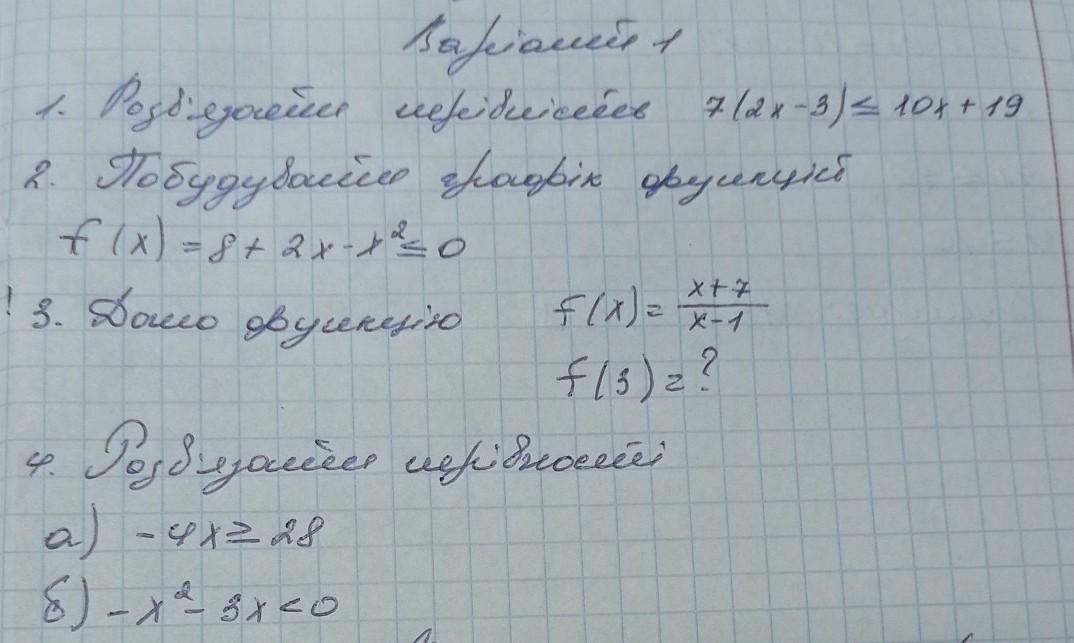 Варіант 1
1. Розв'язати нерівність 7(2x-3) ≤ 10x + 19
2. Побудувати графік функції
f(x) = 8 + 2x - x² ≤ 0
! 3. Дано функцію f(x) = (x+7)/(x-1)
f(3) = ?
4. Розв'язати нерівності
а) -4x ≥ 28
б) -x² - 3x < 0